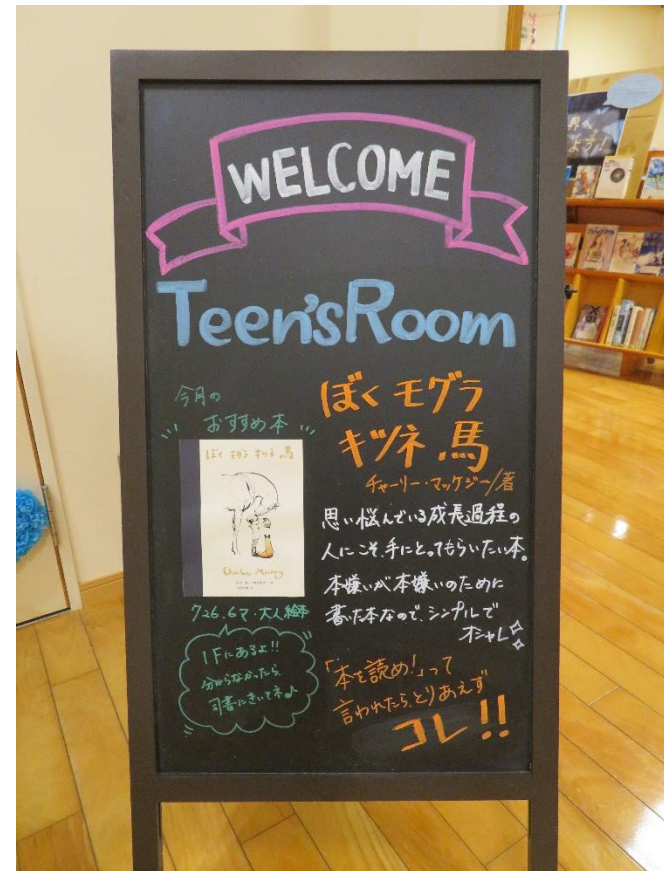 WELCOME
Teen'sRoom
今月の
おすすめ本
ぼく モグラ キツネ 馬
Charlie Mackesy
726.6マ・大人絵本
1Fにあるよ!!
分からなかったら、
司書にきいてネ♪
ぼく モグラ
キツネ 馬
チャーリー・マッケジー/著
思い悩んでいる成長過程の
人にこそ、手にとってもらいたい本。
本嫌いが本嫌いのために
書いた本なので、シンプルで
オシャレ
「本を読め!」って
言われたら、とりあえず
コレ!!